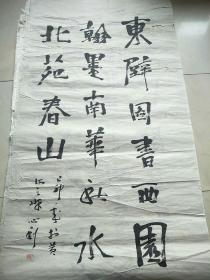 東壁图書西園
翰墨南華秋水
北苑春山